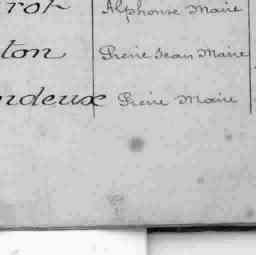 rot Alphonse Marie
ton Pierre Jean Marie
ndeux Pierre Marie